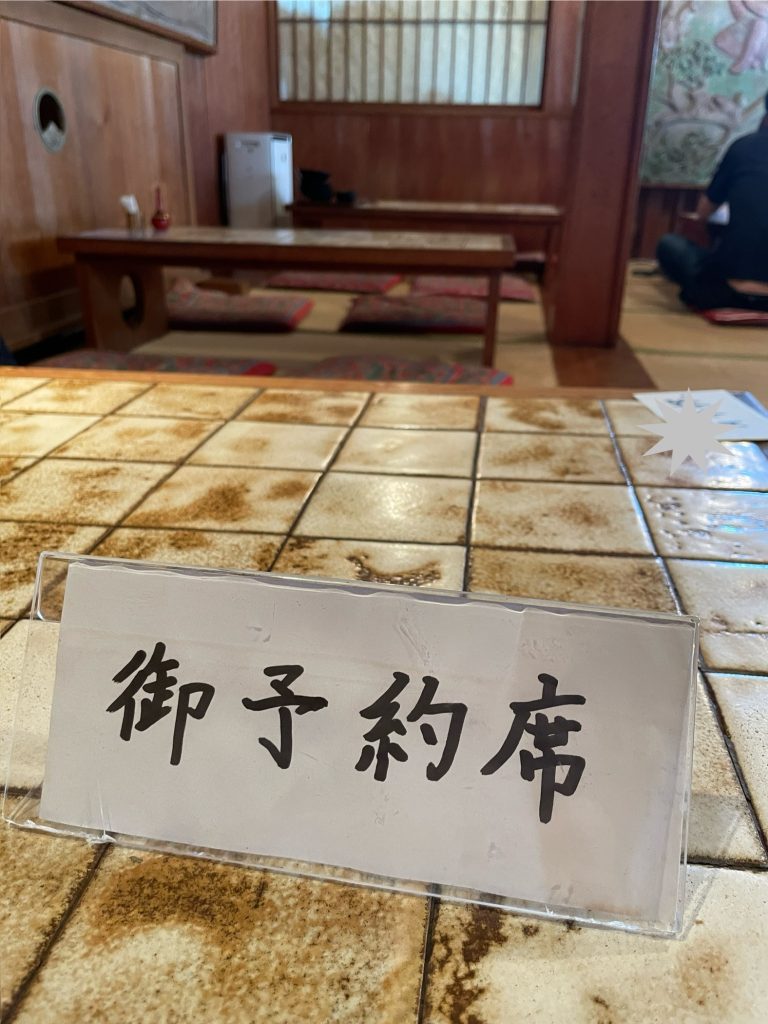 御予約席